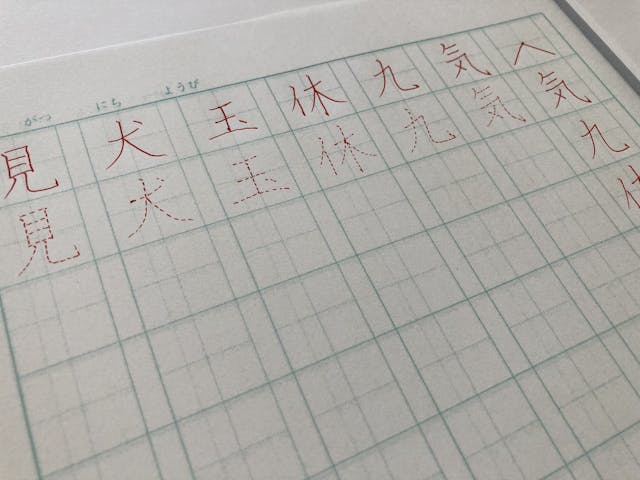 がつ にち ようび
気九休
気気
九九
休休
玉玉
犬犬
見見